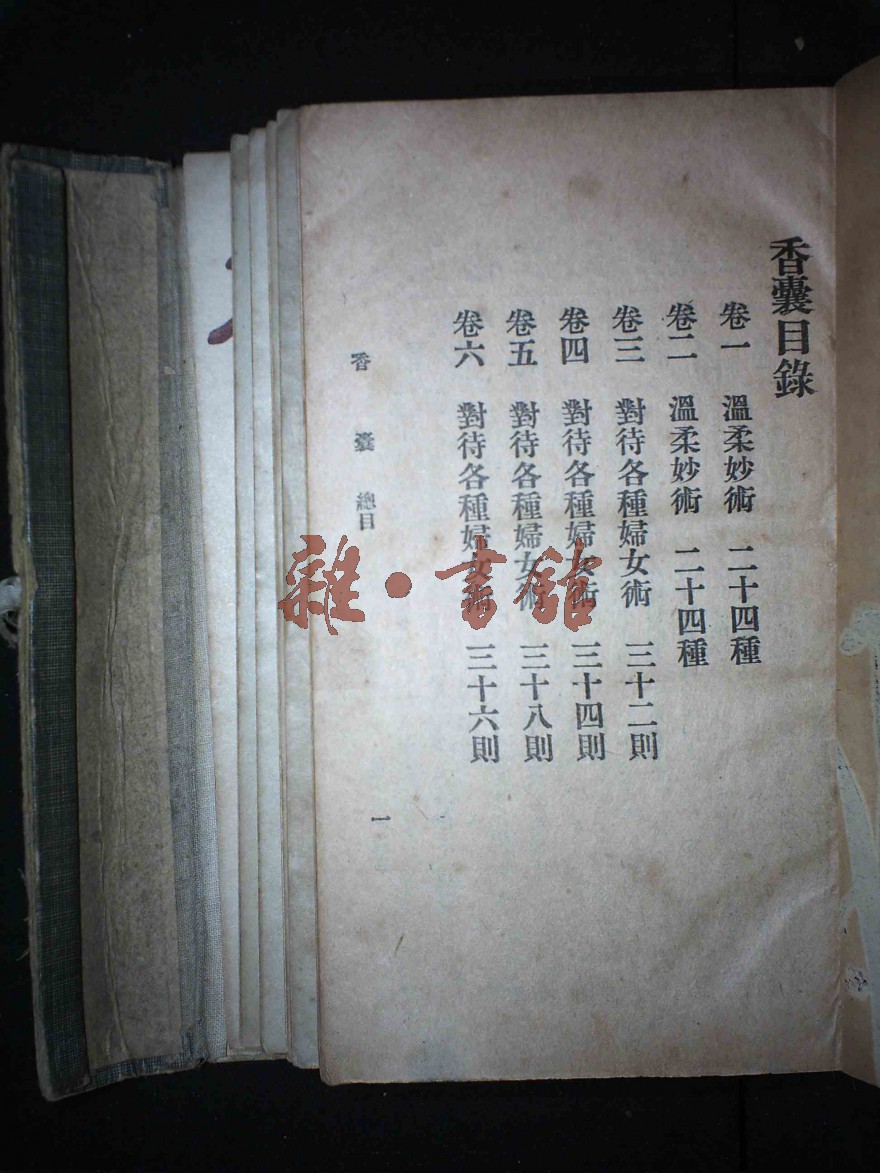 香囊目錄
卷一 溫柔妙術 二十四種
卷二 溫柔妙術 二十四種
卷三 對待各種婦女術 三十二則
卷四 對待各種婦女術 三十四則
卷五 對待各種婦女術 三十八則
卷六 對待各種婦女術 三十六則
香囊 總目 一
雜·書館